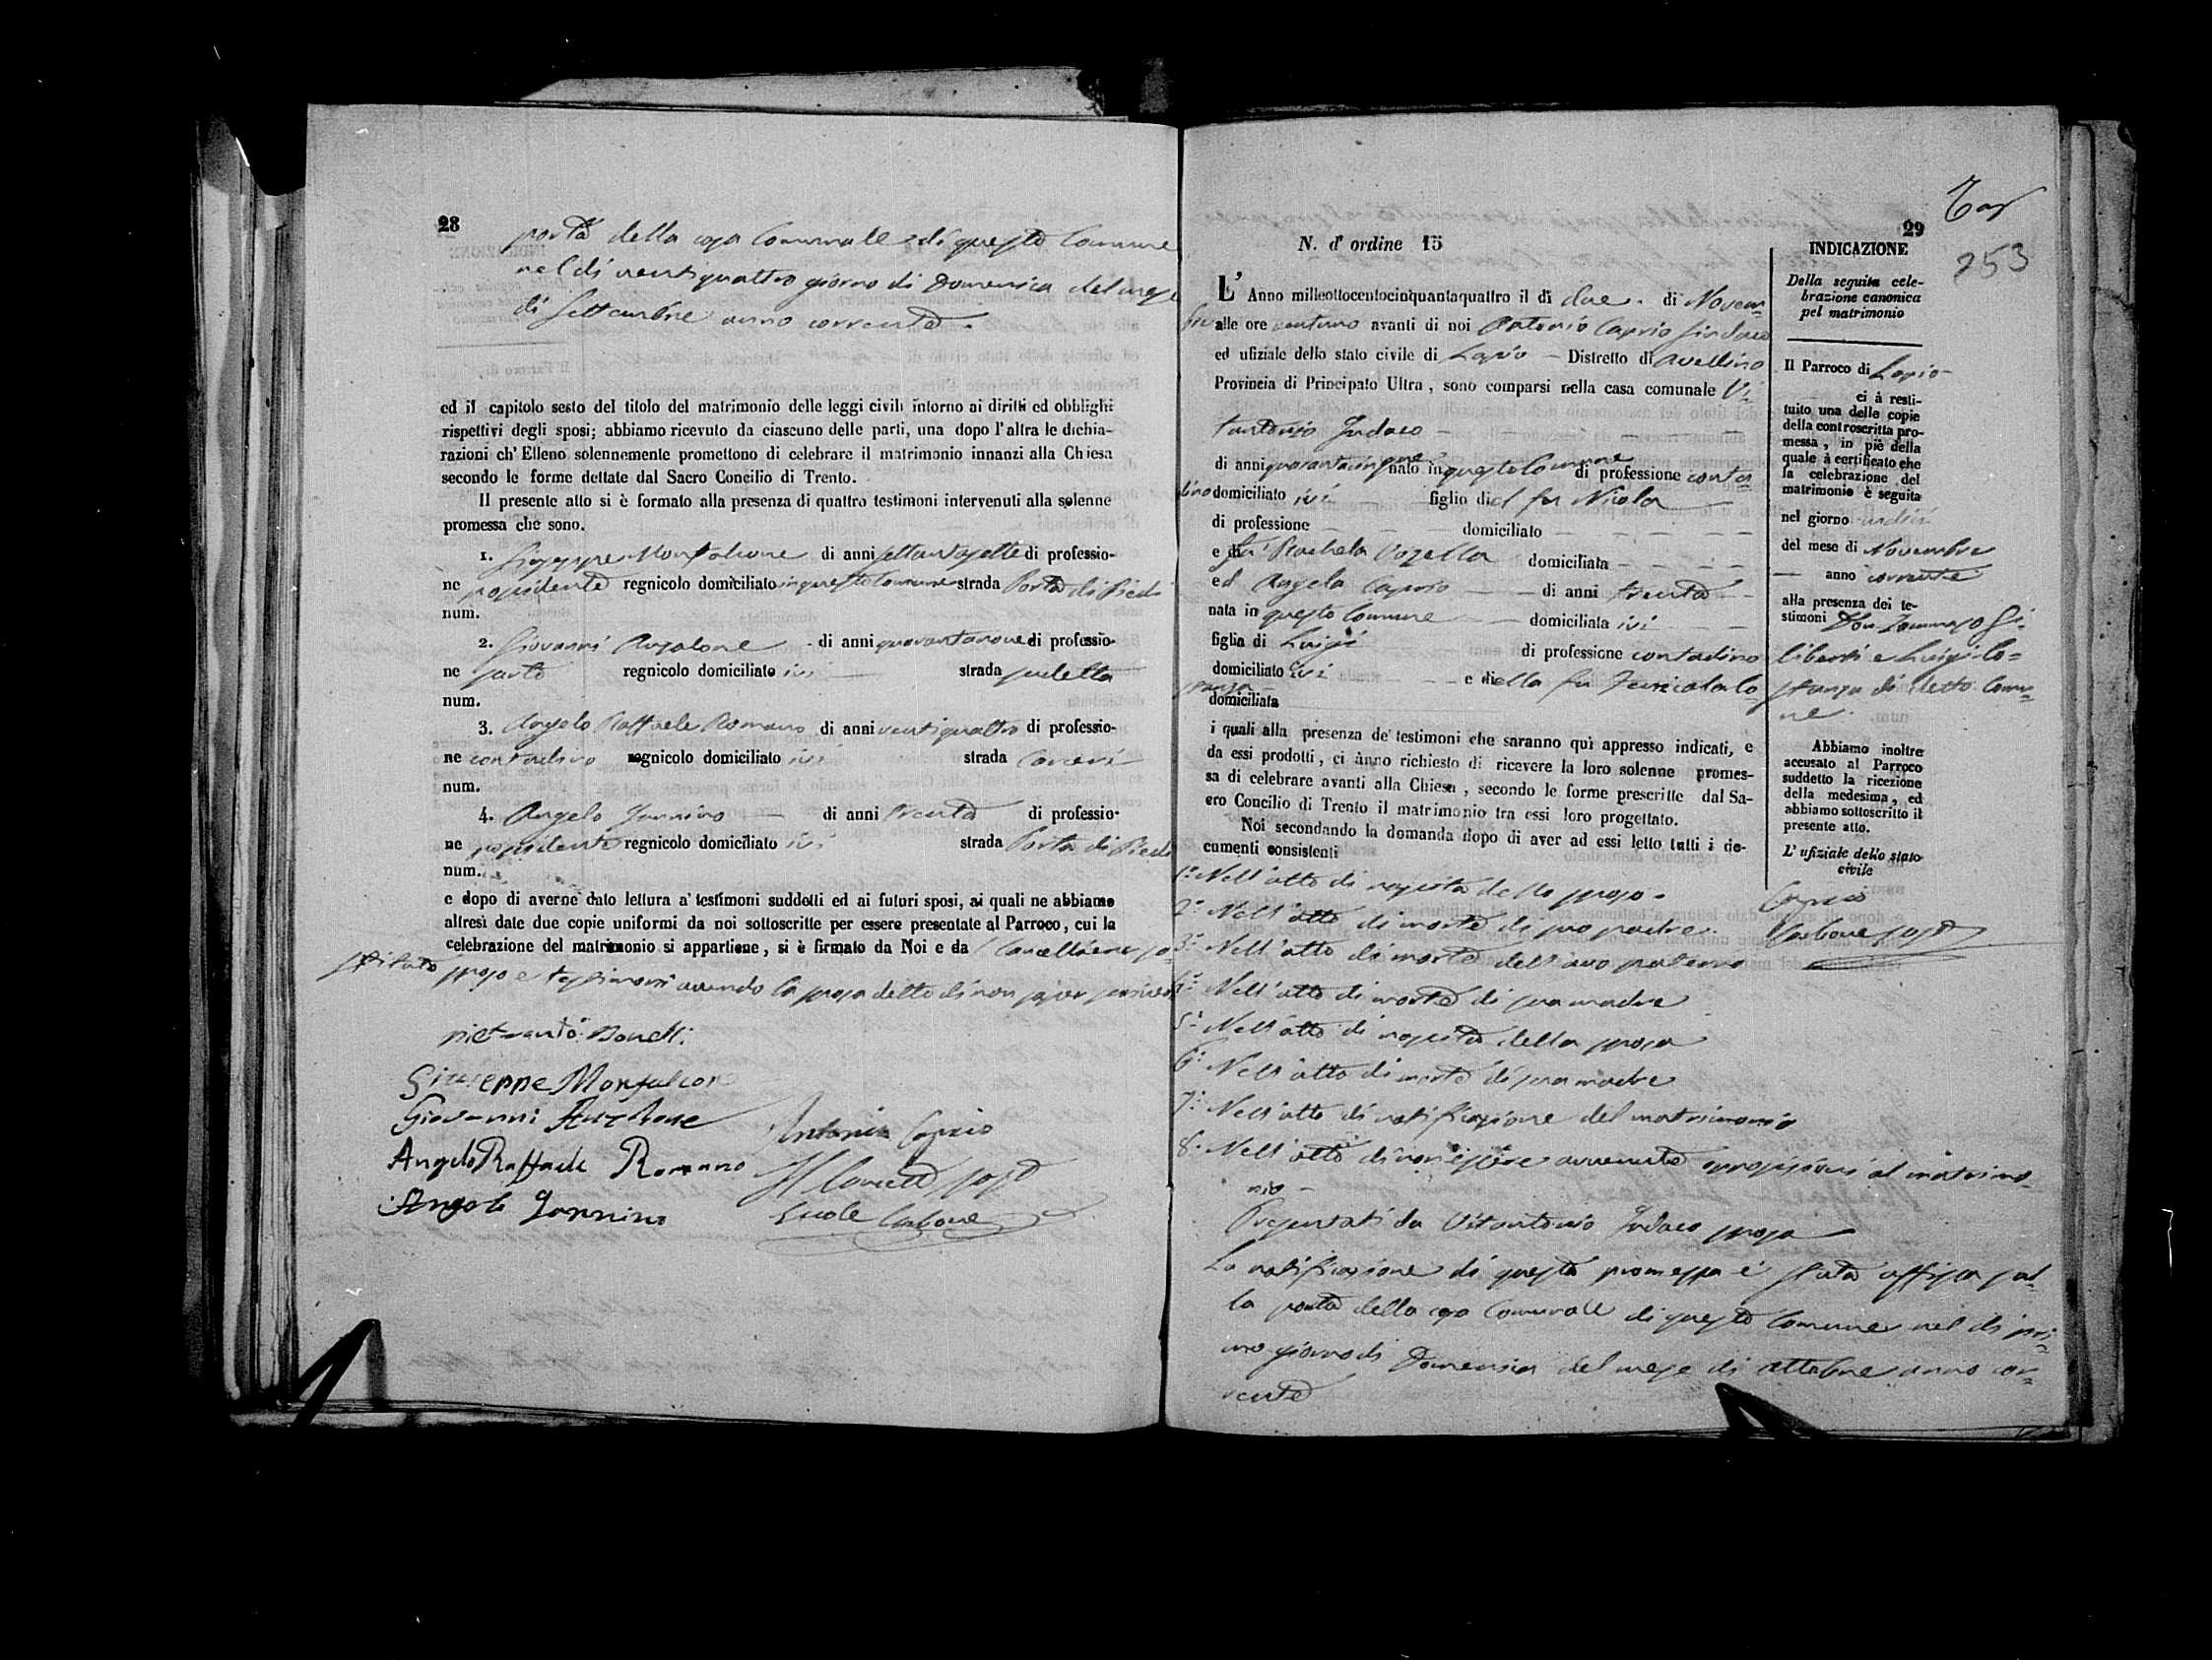 28
porta della casa Comunale di questo Comune
nel di ventiquattro giorno di Domenica del mese
di Settembre anno corrente.
ed il capitolo sesto del titolo del matrimonio delle leggi civili intorno ai diritti ed obblighi
rispettivi degli sposi; abbiamo ricevuto da ciascuno delle parti, una dopo l'altra le dichia-
razioni ch'Elleno solennemente promettono di celebrare il matrimonio innanzi alla Chiesa
secondo le forme dettate dal Sacro Concilio di Trento.
Il presente atto si è formato alla presenza di quattro testimoni intervenuti alla solenne
promessa che sono.
1. Giuseppe Monfalcone di anni settantasette di professio-
ne possidente regnicolo domiciliato in questo Comune strada Porta di Piedi
num.
2. Giovanni Anzalone di anni quarantanove di professio-
ne sarto regnicolo domiciliato ivi strada
num.
3. Angelo Raffaele Romano di anni ventiquattro di professio-
ne contadino regnicolo domiciliato ivi strada Carceri
num.
4. Angelo Jannino di anni trenta di professio-
ne possidente regnicolo domiciliato ivi strada Porta di Piedi
num.
e dopo di averne dato lettura a' testimoni suddetti ed ai futuri sposi, ai quali ne abbiamo
altresì date due copie uniformi da noi sottoscritte per essere presentate al Parroco, cui la
celebrazione del matrimonio si appartiene, si è firmato da Noi e da Cancelliere so-
stituto sposo e testimoni avendo la sposa detto di non saper scrivere
Giuseppe Monfalcone
Giovanni Anzalone
Antonio Caprio
Angelo Raffaele Romano
Angelo Jannino
Carbone
29
253
N. d'ordine 15
L'Anno milleottocentocinquantaquattro il di due di Novem-
bre alle ore ventuno avanti di noi Antonio Caprio Sindaco
ed ufiziale dello stato civile di Lapio Distretto di Avellino
Provincia di Principato Ultra, sono comparsi nella casa comunale Vi-
tantonio Judaco
di anni quarantacinque nato in questo Comune di professione conta-
dino domiciliato ivi figlio di del fu Nicola
di professione domiciliato
e di fu Rachela Vozella domiciliata
ed Angela Caprio di anni trenta
nata in questo Comune domiciliata ivi
figlia di Luigi di professione contadino
domiciliato ivi e di della fu Lo-
stanza
domiciliata
i quali alla presenza de' testimoni che saranno quì appresso indicati, e
da essi prodotti, ci ànno richiesto di ricevere la loro solenne promes-
sa di celebrare avanti alla Chiesa, secondo le forme prescritte dal Sa-
cro Concilio di Trento il matrimonio tra essi loro progettato.
Noi secondando la domanda dopo di aver ad essi letto tutti i do-
cumenti consistenti
1.° Nell'atto di nascita dello sposo.
2.° Nell'atto di morte di suo padre.
3.° Nell'atto di morte dell'avo paterno
4.° Nell'atto di morte di sua madre
5.° Nell'atto di nascita della sposa
6.° Nell'atto di morte di sua madre
7.° Nell'atto di notificazione del matrimonio
8.° Nell'atto di non essere avvenute opposizioni al matrimo-
nio
Presentati da Vitantonio Judaco sposo
La notificazione di questa promessa è stata affissa sul-
la porta della casa Comunale di questo Comune nel di pri-
mo giorno di Domenica del mese di ottobre anno cor-
rente
INDICAZIONE
Della seguita cele-
brazione canonica
pel matrimonio
Il Parroco di Lapio
ci à resti-
tuito una delle copie
della controscritta pro-
messa, in piè della
quale à certificato che
la celebrazione del
matrimonio è seguita
nel giorno undici
del mese di Novembre
anno corrente
alla presenza dei te-
stimoni Don Tommaso Gi-
liberti e Luigi Co-
stanza di detto Comu-
ne.
Abbiamo inoltre
accusato al Parroco
suddetto la ricezione
della medesima, ed
abbiamo sottoscritto il
presente atto.
L'ufiziale dello stato
civile
Caprio
Carbone